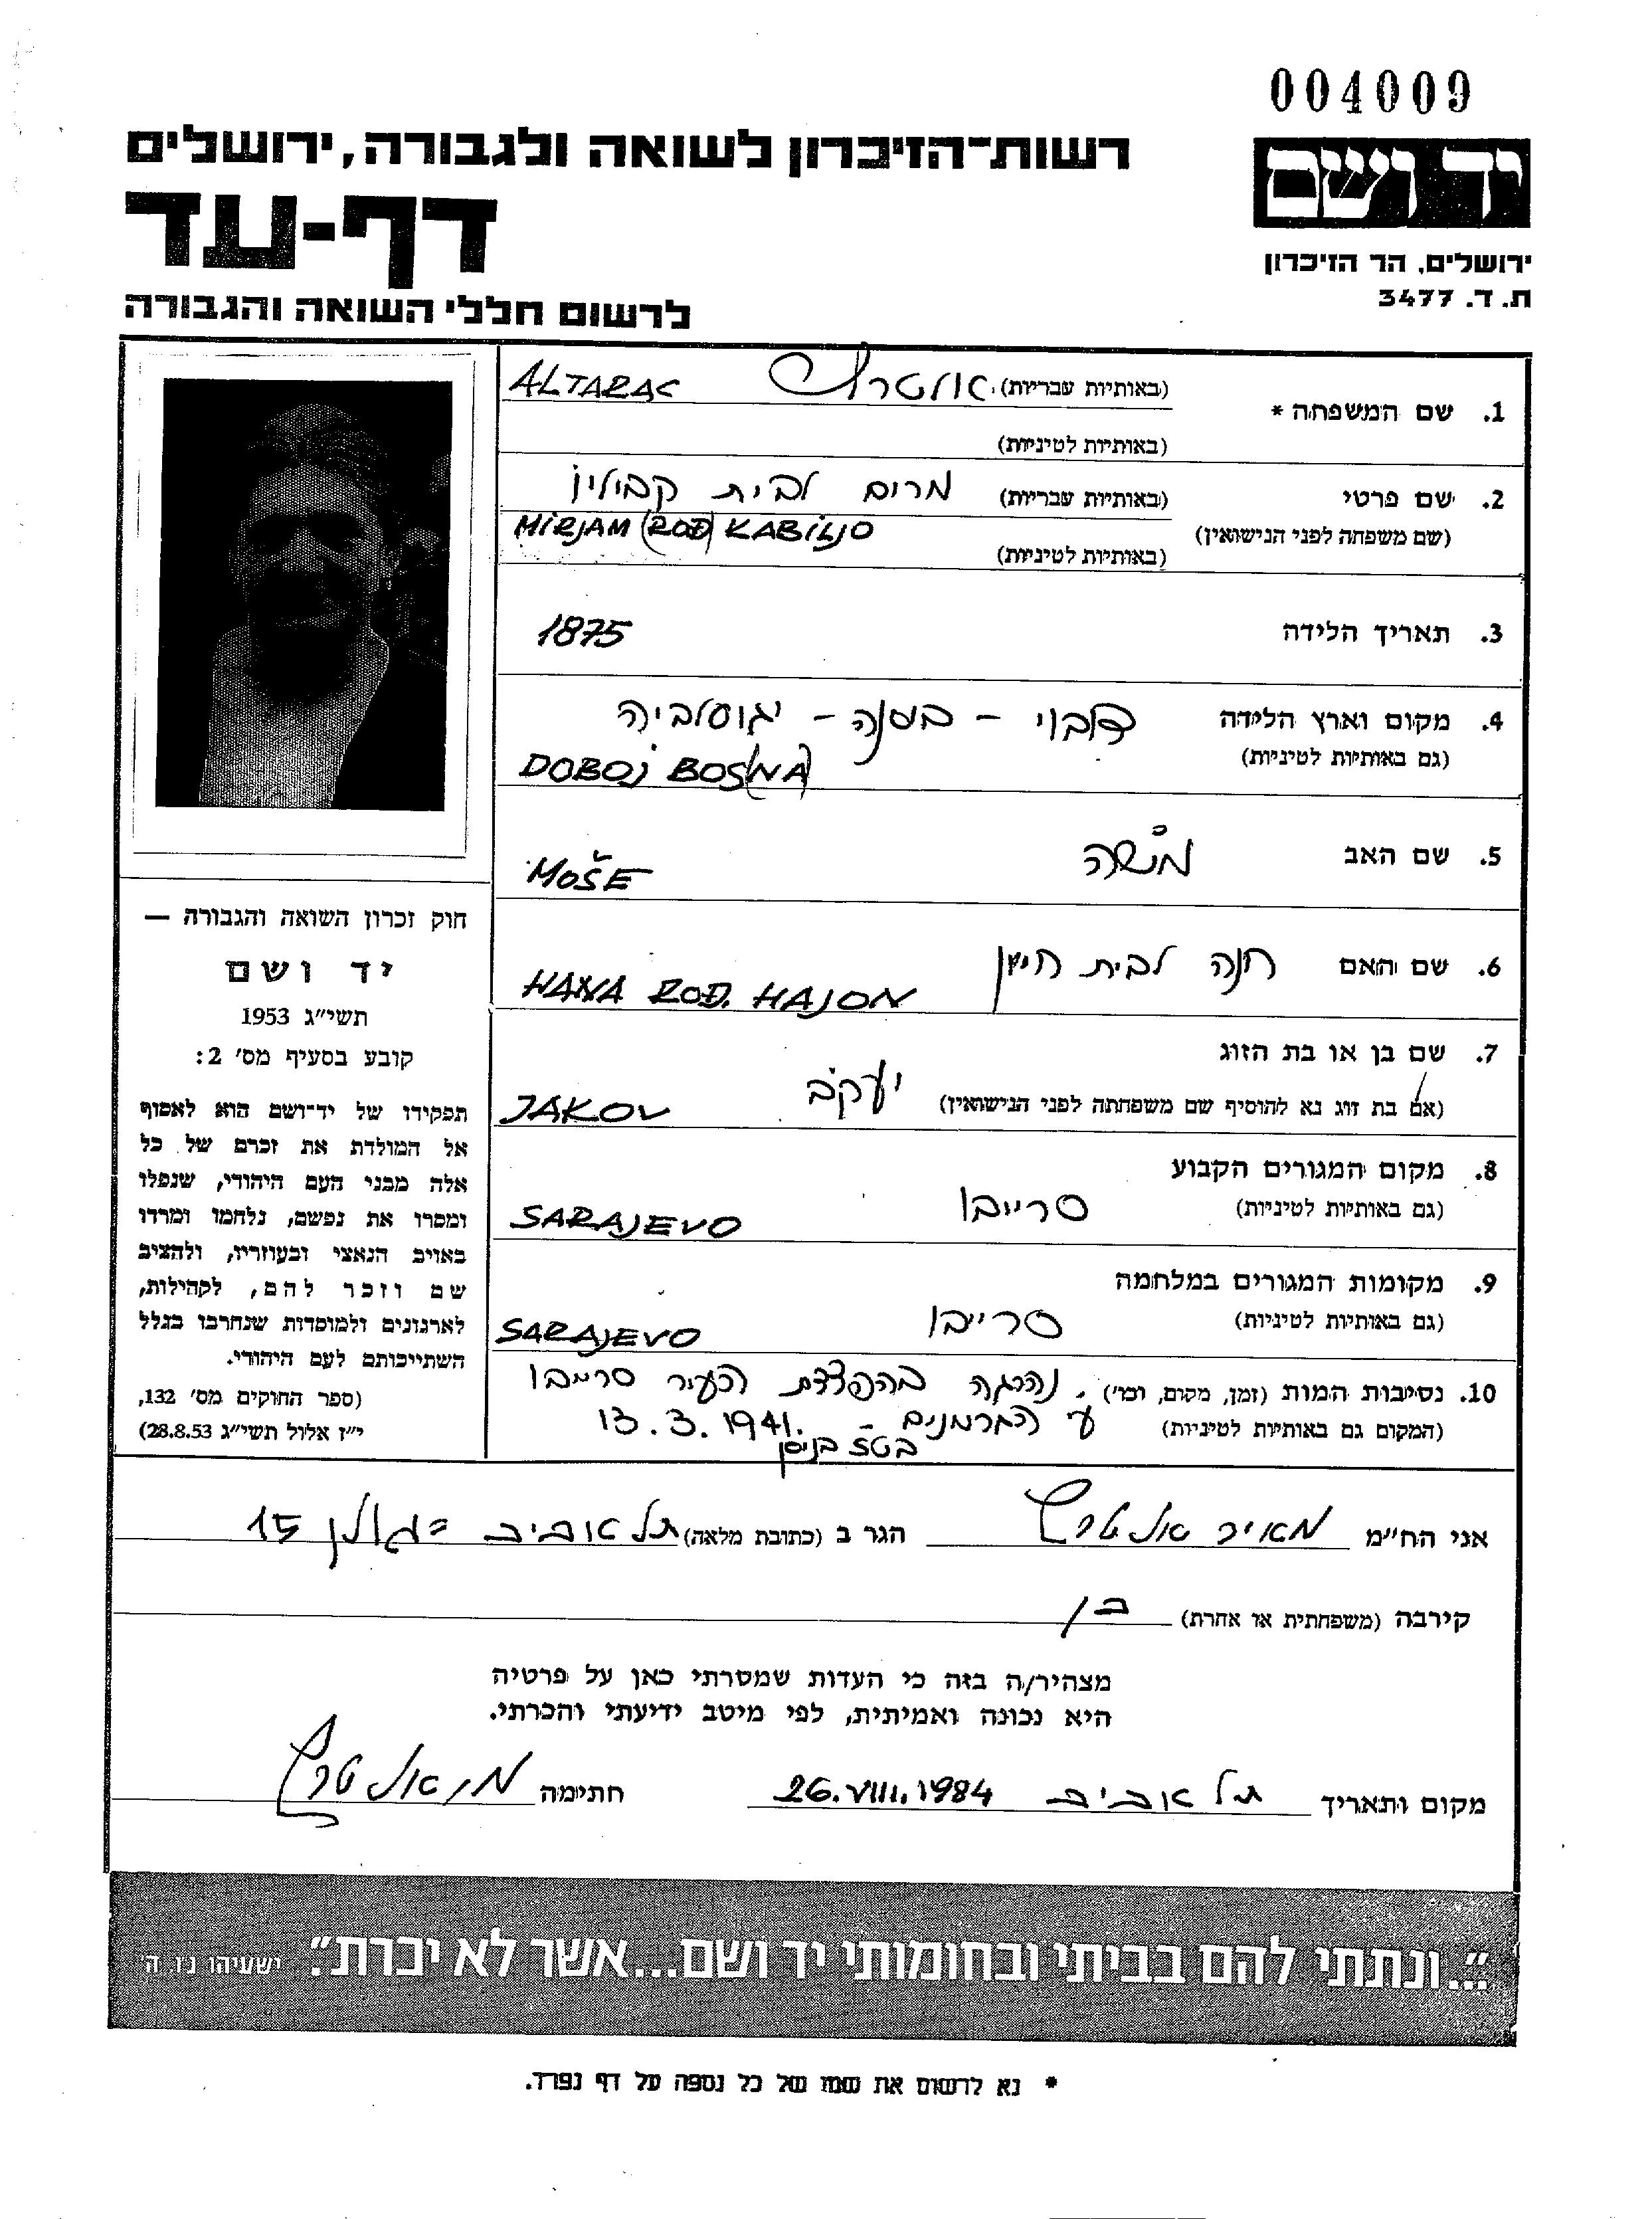 004009
יד ושם
רשות־הזיכרון לשואה ולגבורה, ירושלים
דף-עד
ירושלים, הר הזיכרון
ת. ד. 3477
לרשום חללי השואה והגבורה
1. שם המשפחה * (באותיות עבריות) אלטרץ ALTARAC
(באותיות לטיניות)
2. שם פרטי (באותיות עבריות) מרים לבית קביליו
(שם משפחה לפני הנישואין) (באותיות לטיניות) MIRJAM (ROĐ) KABILJO
3. תאריך הלידה 1875
4. מקום וארץ הלידה דובוי - בוסנה - יגוסלביה
(גם באותיות לטיניות) DOBOJ BOSNA
5. שם האב משה MOŠE
6. שם האם חנה לבית חיון HANA ROĐ. HAJON
7. שם בן או בת הזוג
(אם בת זוג נא להוסיף שם משפחתה לפני הנישואין) יעקב JAKOV
8. מקום המגורים הקבוע
(גם באותיות לטיניות) סרייבו SARAJEVO
9. מקומות המגורים במלחמה
(גם באותיות לטיניות) סרייבו SARAJEVO
10. נסיבות המות (זמן, מקום, וכו') נהרגה בהפצצת העיר סרייבו
(המקום גם באותיות לטיניות) ע"י הגרמנים - 13.3.1941.
בניסן
חוק זכרון השואה והגבורה —
יד ושם
תשי"ג 1953
קובע בסעיף מס' 2:
תפקידו של יד-ושם הוא לאסוף
אל המולדת את זכרם של כל
אלה מבני העם היהודי, שנפלו
ומסרו את נפשם, נלחמו ומרדו
באויב הנאצי ובעוזריו, ולהציב
שם וזכר להם, לקהילות,
לארגונים ולמוסדות שנחרבו בגלל
השתייכותם לעם היהודי.
(ספר החוקים מס' 132,
י"ז אלול תשי"ג 28.8.53)
אני הח"מ מאיר אלטרץ הגר ב (כתובת מלאה) תל אביב הגולן 15
קירבה (משפחתית או אחרת) בן
מצהיר/ה בזה כי העדות שמסרתי כאן על פרטיה
היא נכונה ואמיתית, לפי מיטב ידיעתי והכרתי.
מקום ותאריך תל אביב 26.VIII.1984 חתימה מ. אלטרץ
"...ונתתי להם בביתי ובחומותי יד ושם...אשר לא יכרת". ישעיהו נ"ו ה'
* נא לרשום את שמו של כל נספה על דף נפרד.